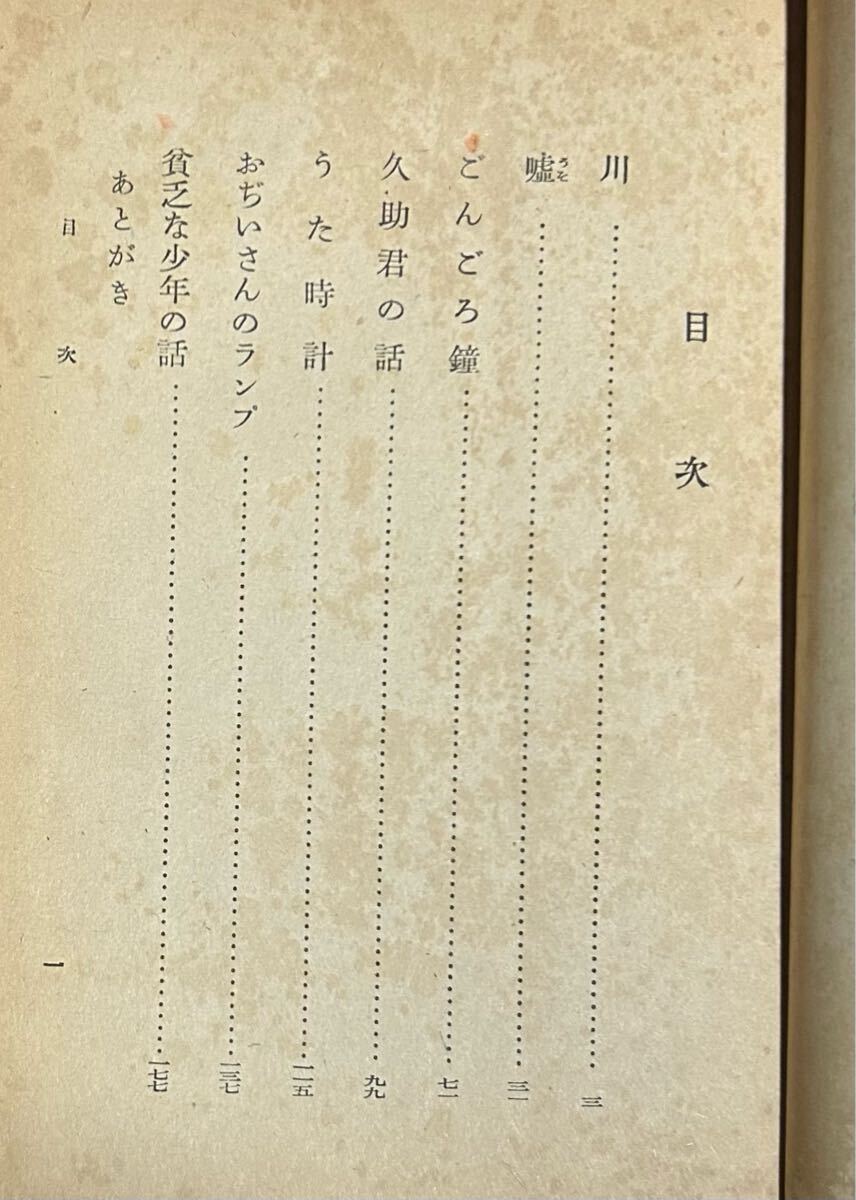 目次
川……………………………三
嘘うそ……………………………三一
ごんごろ鐘……………………………七一
久助君の話……………………………九九
うた時計……………………………一一五
おぢいさんのランプ……………………………一三七
貧乏な少年の話……………………………一七七
あとがき
目次
一